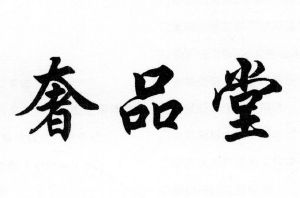 奢品堂